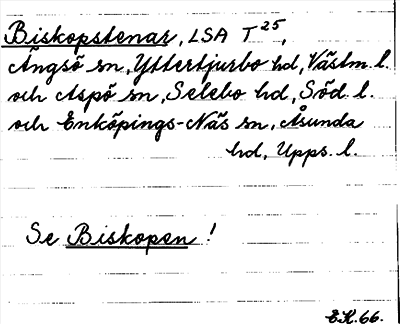 Biskopstenar, LSA T 25,
Ängsö sn, Yttertjurbo hd, Västm. l.
och Aspö sn, Selebo hd, Söd. l.
och Enköpings-Näs sn, Åsunda
hd, Upps. l.
Se Biskopen!
E.H. 66.